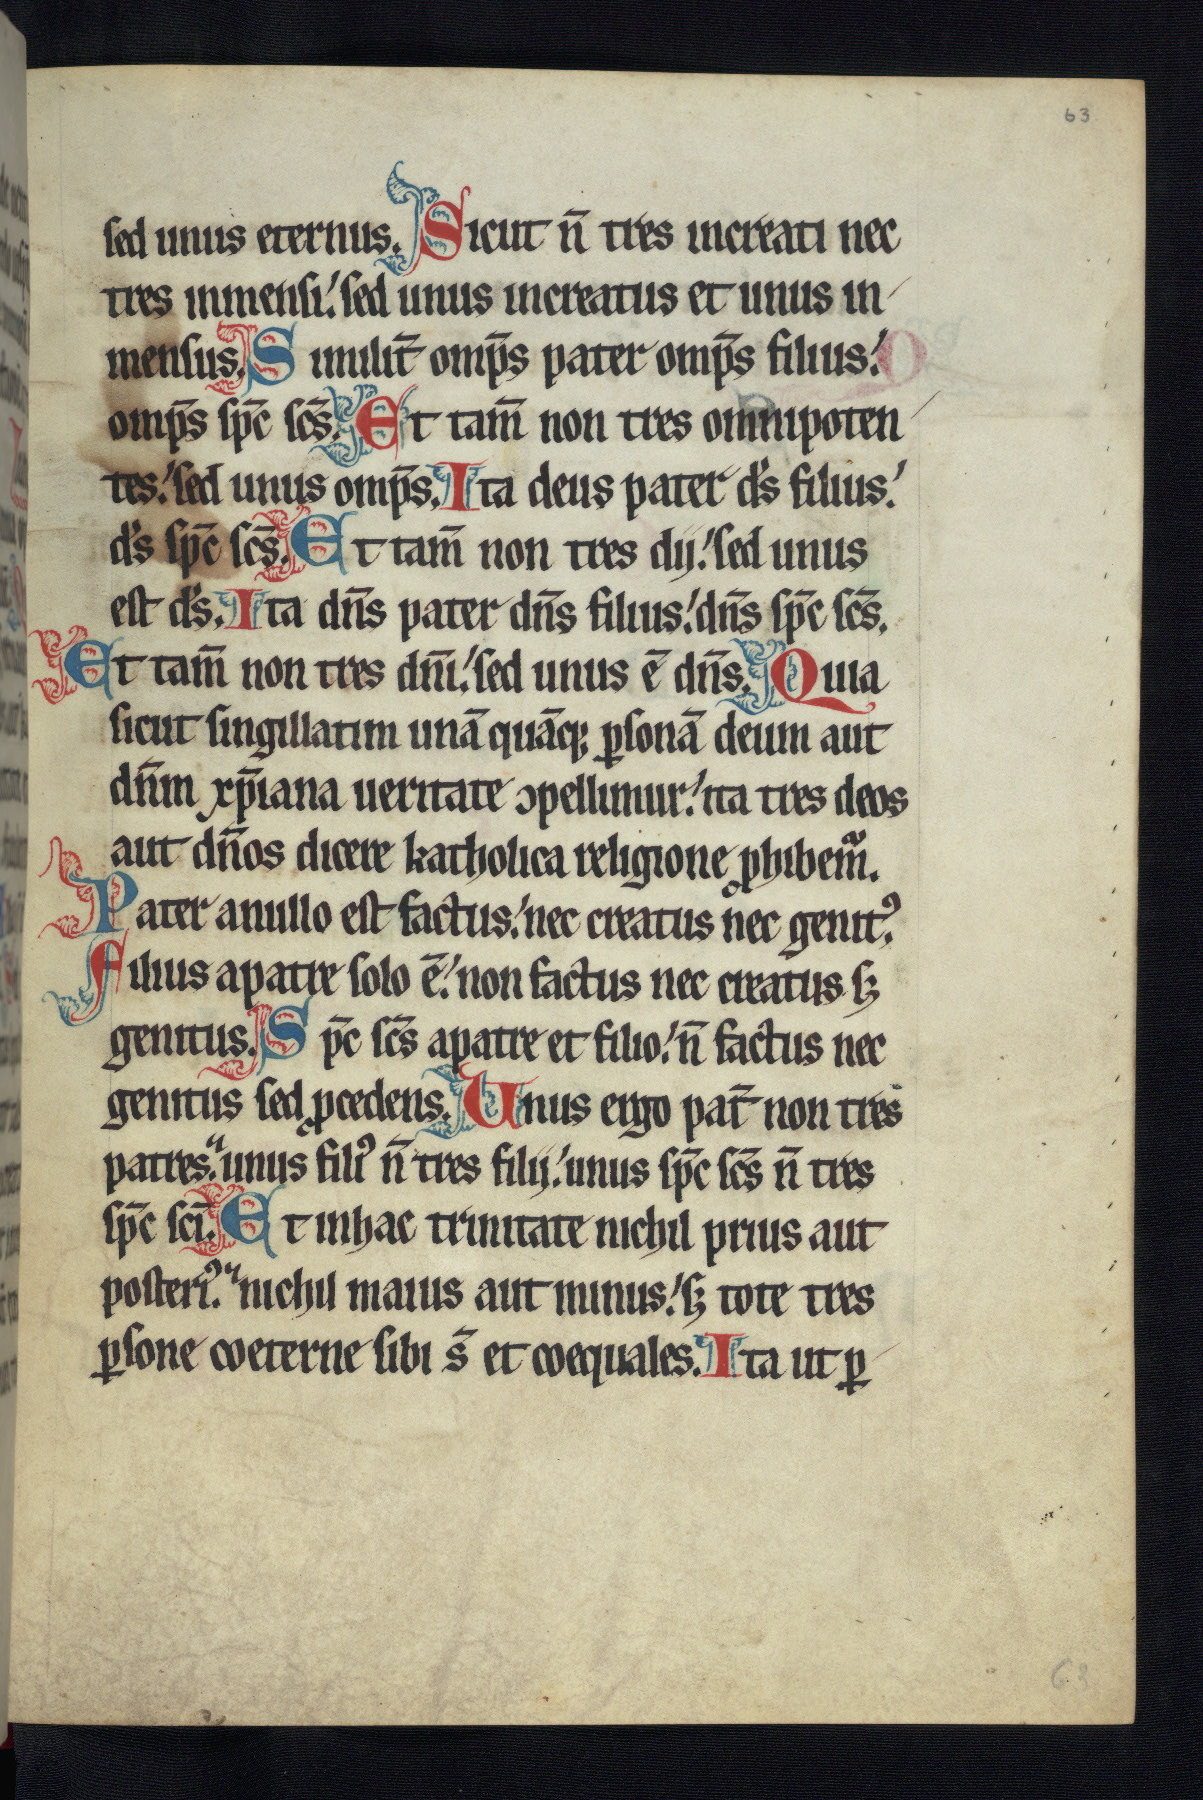 63
sed unus eternus. Sicut n̄ tres increati nec
tres inmensi: sed unus increatus et unus in-
mensus. Similit̄ omp̄s pater omp̄s filius:
omp̄s sp̄c sc̄s. Et tam̄ non tres omnipoten-
tes: sed unus omp̄s. Ita deus pater d's filius:
d's sp̄c sc̄s. Et tam̄ non tres dij: sed unus
est d's. Ita dn̄s pater dn̄s filius: dn̄s sp̄c sc̄s.
Et tam̄ non tres dn̄i: sed unus ē dn̄s. Quia
sicut singillatim unā quāqꝫ ꝑsonā deum aut
dn̄m xp̄iana ueritate ꝯpellimur: ita tres deos
aut dn̄os dicere katholica religione ꝓhibem̃.
Pater anullo est factus: nec creatus nec genitꝰ.
Filius apatre solo ē: non factus nec creatus sꝫ
genitus. Sp̄c sc̄s apatre et filio: n̄ factus nec
genitus sed ꝓcedens. Unus ergo pat̄ non tres
patres: unus filiꝰ n̄ tres filij: unus sp̄c sc̄s n̄ tres
sp̄c sc̄i. Et inhac trinitate nichil prius aut
posteriꝰ: nichil maius aut minus: sꝫ tote tres
ꝑsone coeterne sibi s̄ et coequales. Ita ut ꝑ-
63